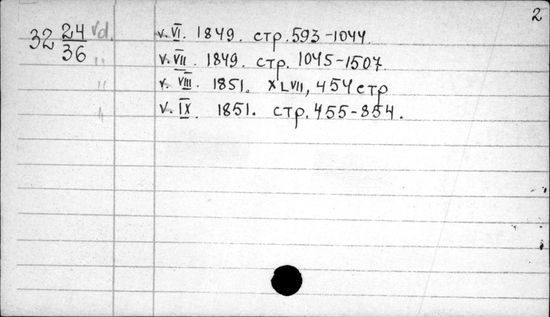 2
32 24/36 vd. v. VI. 1849. стр. 593-1044.
" v. VII. 1849. стр. 1045-1507.
" v. VIII. 1851. XLVII, 454 стр
" v. IX. 1851. стр. 455-854.